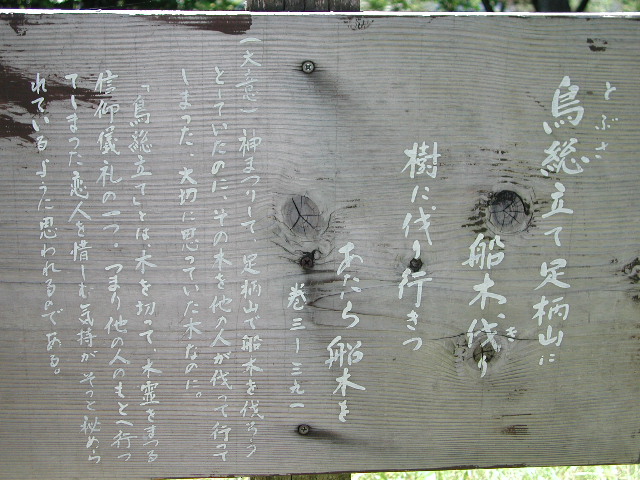 とぶさ
鳥総立て足柄山に
船木伐り
き
樹に伐り行きつ
あたら船木を
巻三ー三九一
(大意)神まつりして、足柄山で船木を伐ろう
としていたのに、その木を他の人が伐って行って
しまった、大切に思っていた木なのに。
「鳥総立て」とは、木を切って、木霊をまつる
信仰儀礼の一つ。つまり他の人のもとへ行っ
てしまった恋人を惜しむ気持がそっと秘めら
れているように思われるのである。